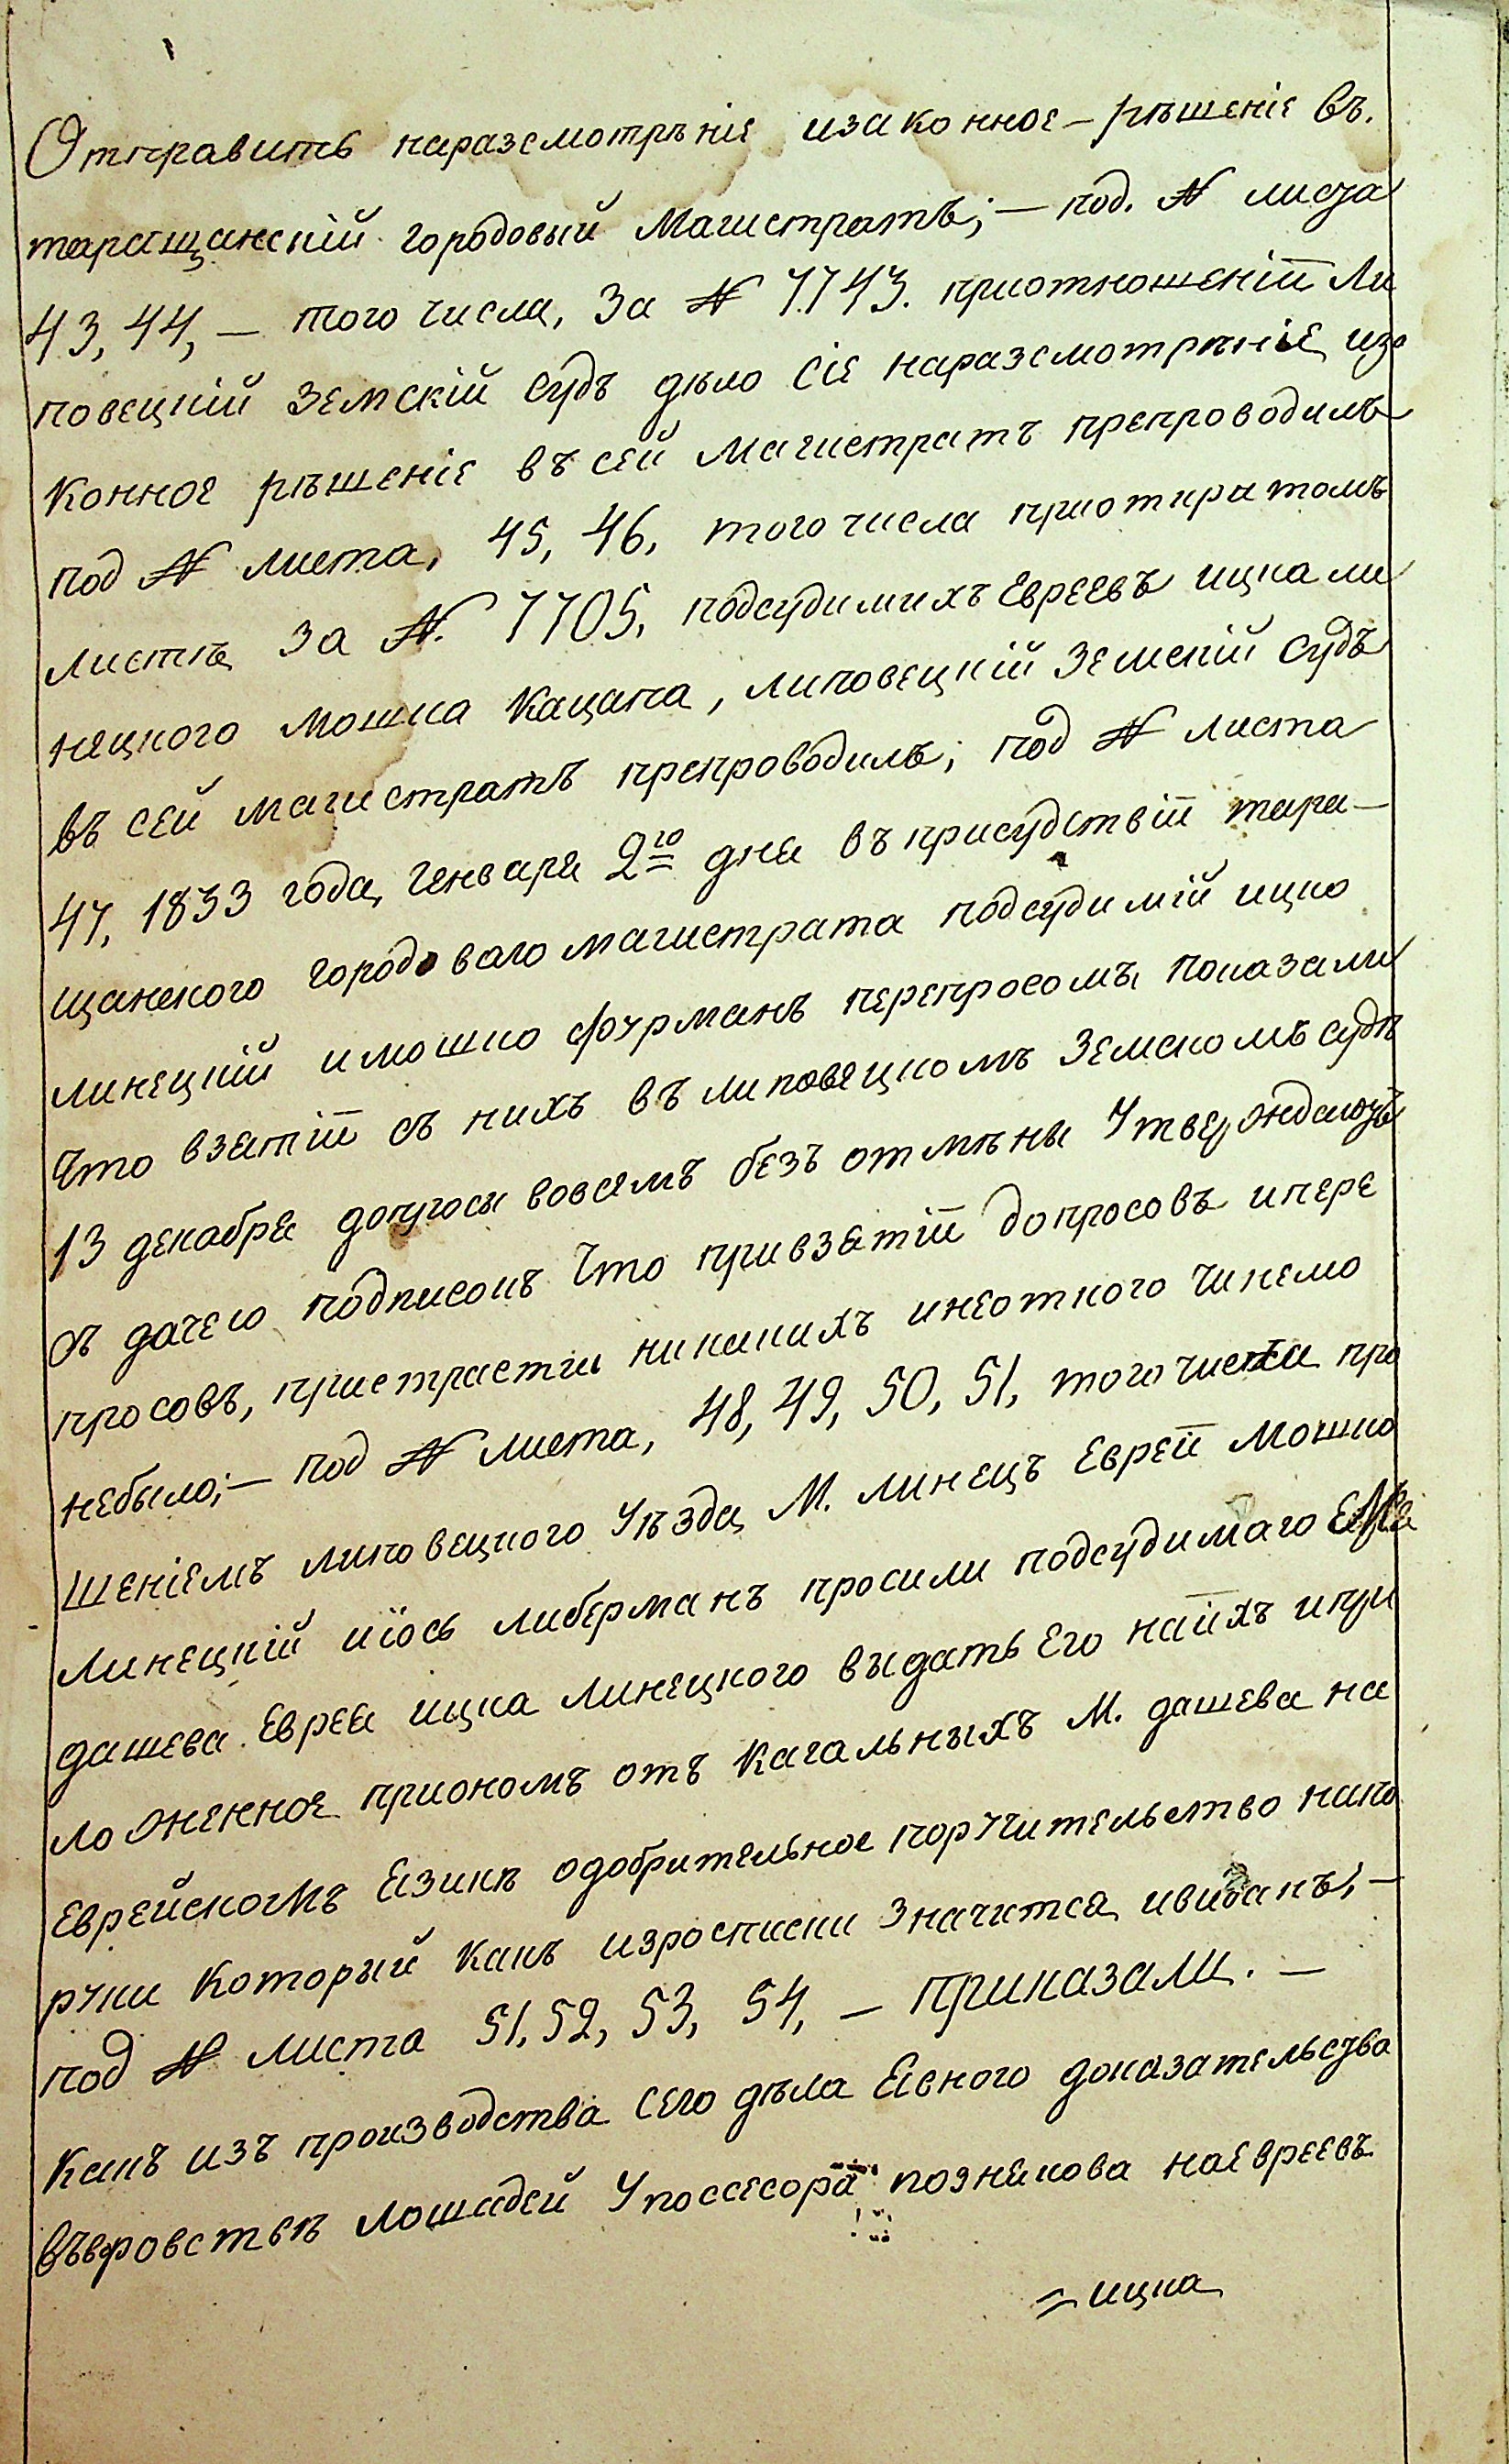 Отправить наразсмотрѣніе изаконное – рѣшеніе въ.
таращанскій городовый магистратъ; – под. № листа
43, 44, – того числа, За № 7743. приотношеніи Ли
повецкій Земскій судъ дѣло сіе наразсмотрѣніе иза
конное рѣшеніе въ сей магистратъ препроводилъ
под № листа, 45, 46, того числа приоткритомъ
листѣ За №. 7705, подсудимихъ Евреевъ ицка ли
нецкого мошка Кацапа, липовецкій Земскій судъ
въ сей магистратъ препроводилъ; под № листа
47, 1833 года, генваря 2го дня въ присудствіи тара –
щанского городоваго магистрата подсудимій ицко
линецкій имошко фурманъ перепросомъ показали
Что взятіи съ нихъ въ липовецкомъ Земскомъ судѣ
13 декабря допросы вовсемъ безъ отмѣны Утверждаютъ
съ дачею подписокъ Что привзятіи допросовъ ипере
просовъ, пристрастіи никакихъ инеоткого Чинемо
небыло; – под № листа, 48, 49, 50, 51, того числа про
шеніемъ липовецкого Уѣзда, М. линецъ Еврей мошко
линецкій иіось либерманъ просили подсудимаго
дашева. Еврея ицка линецкого выдать Его наихъ ипри
ложенное приономъ отъ Кагальныхъ М. дашева на
Еврейскомъ Езикѣ одобрительное поручительство напо
руки Который какъ изросписки Значится, ивиданъ, –
под № листа 51, 52, 53, 54, – приказали. –
Какъ изъ производства сего дѣла Есного доказательства
въворовствѣ лошадей Упоссесора познякова наЕвреевъ
= ицка